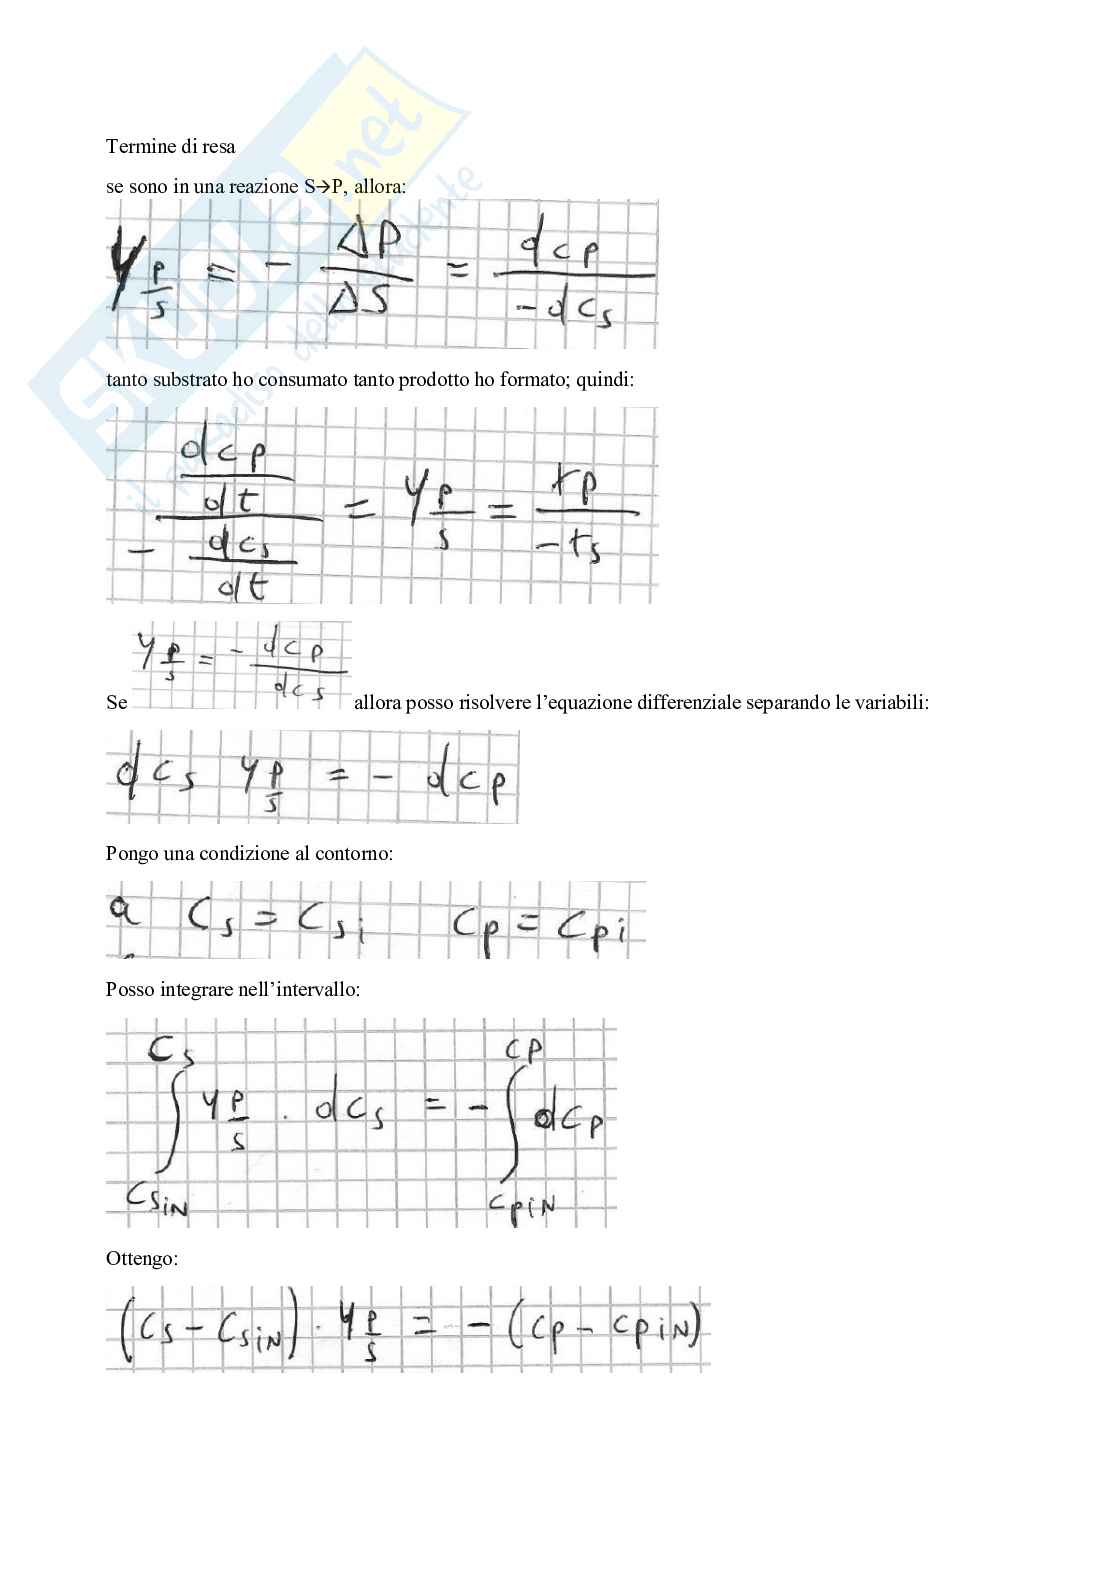 SKUOLA.net
il paradiso dello studente
Termine di resa
se sono in una reazione S→P, allora:
Y P/S = - ΔP/ΔS = dcp/-dcs
tanto substrato ho consumato tanto prodotto ho formato; quindi:
- (dcp/dt)/(dcs/dt) = Y P/S = rp/-rs
Se Y P/S = - dcp/dcs allora posso risolvere l’equazione differenziale separando le variabili:
dcs Y P/S = - dcp
Pongo una condizione al contorno:
a Cs = Csi Cp = Cpi
Posso integrare nell’intervallo:
∫_{CsiN}^{Cs} Y P/S · dcs = - ∫_{CpiN}^{Cp} dcp
Ottengo:
(Cs - CsiN) · Y P/S = - (Cp - CpiN)